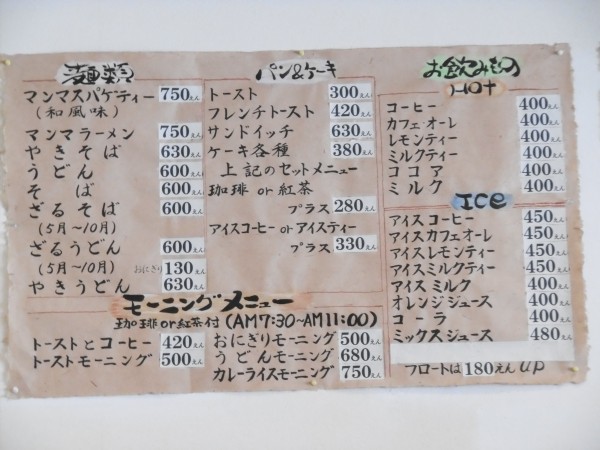 麺類
マンマスパゲティー 750えん
(和風味)
マンマラーメン 750えん
やきそば 630えん
うどん 600えん
そば 600えん
ざるそば 600えん
(5月〜10月)
ざるうどん 600えん
(5月〜10月) おにぎり 130えん
やきうどん 630えん
パン&ケーキ
トースト 300えん
フレンチトースト 420えん
サンドイッチ 630えん
ケーキ各種 380えん
上記のセットメニュー
珈琲 or 紅茶
プラス 280えん
アイスコーヒー or アイスティー
プラス 330えん
お飲みもの
HOT
コーヒー 400えん
カフェオーレ 400えん
レモンティー 400えん
ミルクティー 400えん
ココア 400えん
ミルク 400えん
Ice
アイスコーヒー 450えん
アイスカフェオーレ 450えん
アイスレモンティー 450えん
アイスミルクティー 450えん
アイスミルク 400えん
オレンジジュース 400えん
コーラ 400えん
ミックスジュース 480えん
フロートは 180えん up
モーニングメニュー
珈琲or紅茶付 (AM7:30〜AM11:00)
トーストとコーヒー 420えん
トーストモーニング 500えん
おにぎりモーニング 500えん
うどんモーニング 680えん
カレーライスモーニング 750えん